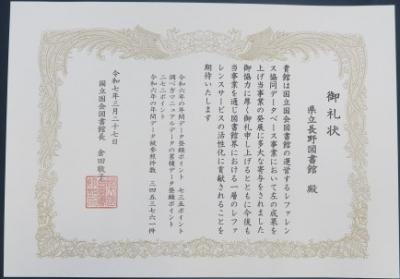 御礼状
県立長野図書館 殿
貴館は国立国会図書館の運営するレファレン
ス協同データベース事業において左の成果を
上げ当事業の発展に多大な寄与をされました
御協力に厚く御礼申し上げるとともに今後も
当事業を通じ図書館界における一層のレファ
レンスサービスの活性化に貢献されることを
期待いたします
令和六年の年間データ登録ポイント 七三五ポイント
調べ方マニュアルデータの累積データ登録ポイント
二七二ポイント
令和六年の年間データ被参照件数 三四五三七六一件
令和七年三月二十七日
国立国会図書館長 倉田敬子